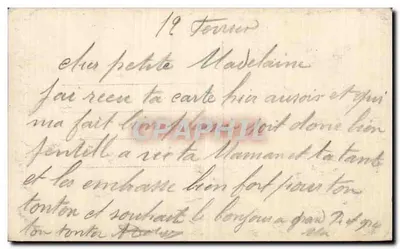 12
cher petite Madelaine
j'ai recu ta carte hier au soir et qui
ma fait bien soit donc bien
gentill a vec ta Maman et ta tante
et les embrasse bien fort pour ton
tonton et souhait le bonjour a
ton tonton